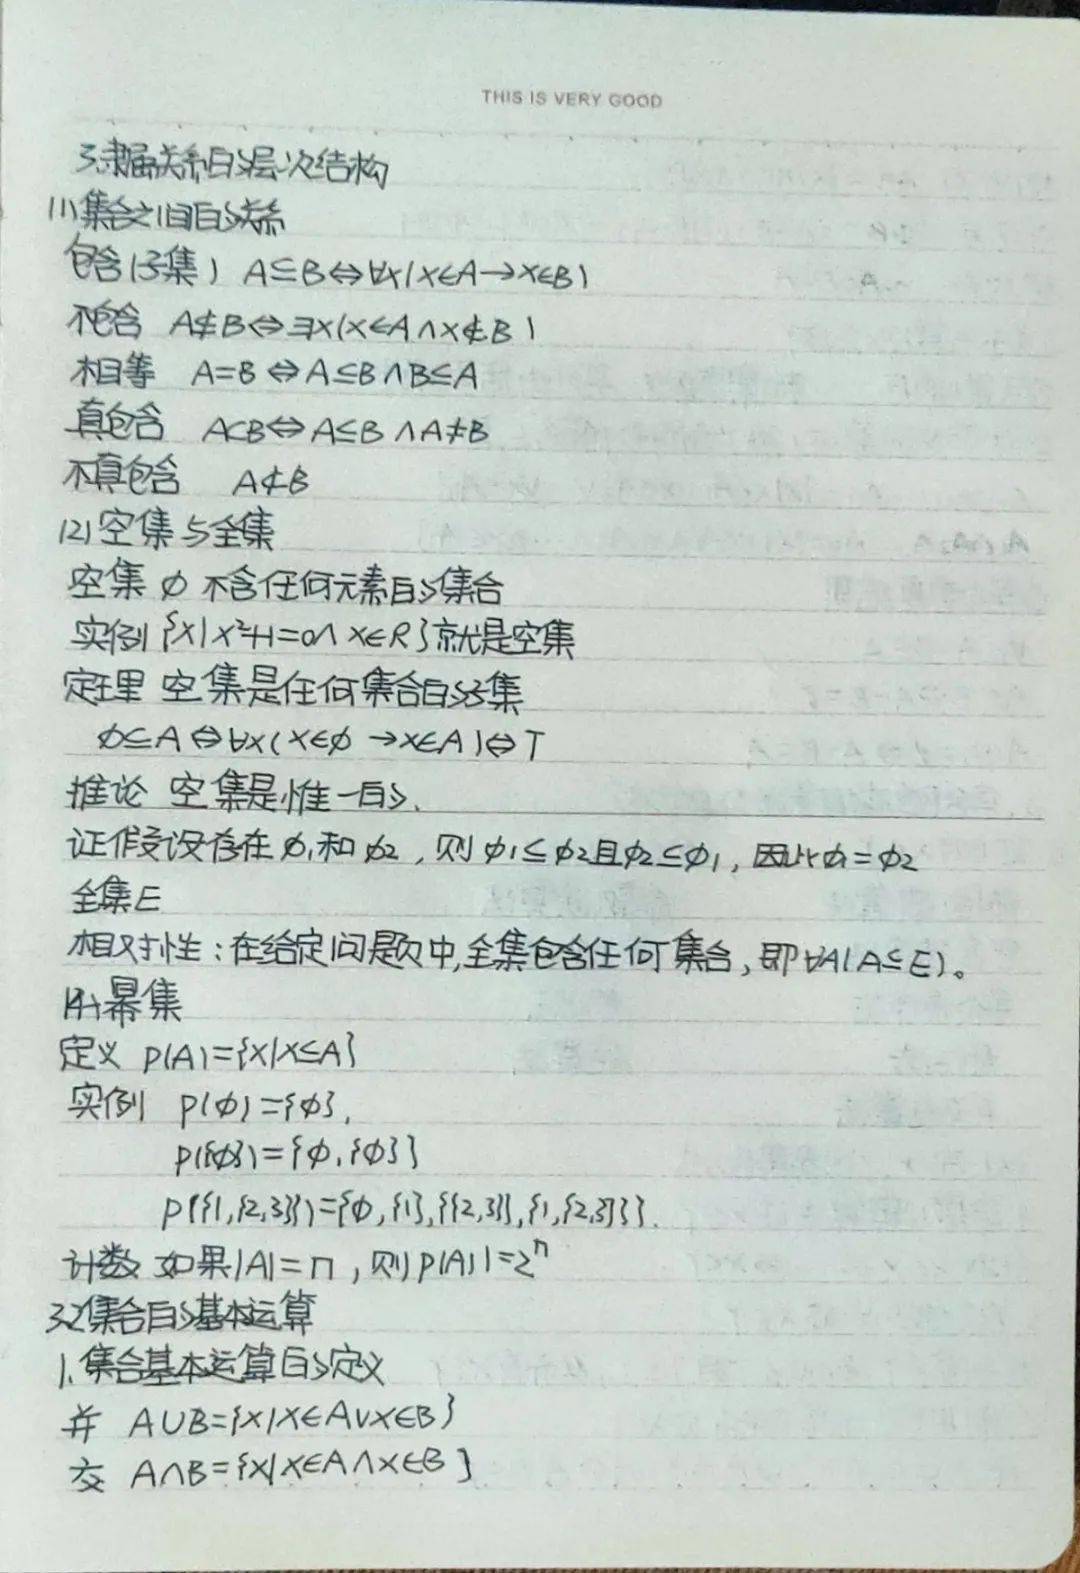 THIS IS VERY GOOD
3.隶属关系的层次结构
(1)集合之间的关系
包含(子集) A⊆B⇔∀x(x∈A→x∈B)
不包含 A⊈B⇔∃x(x∈A∧x∉B)
相等 A=B⇔A⊆B∧B⊆A
真包含 A⊂B⇔A⊆B∧A≠B
不真包含 A⊄B
(2)空集与全集
空集 ∅ 不含任何元素的集合
实例 {x|x²+1=0∧x∈R}就是空集
定理 空集是任何集合的子集
∅⊆A⇔∀x(x∈∅→x∈A)⇔T
推论 空集是惟一的.
证 假设存在∅₁和∅₂,则∅₁⊆∅₂且∅₂⊆∅₁,因此∅₁=∅₂
全集E
相对性:在给定问题中,全集包含任何集合,即∀A(A⊆E)。
幂集
定义 P(A)={x|x⊆A}
实例 P(∅)={∅},
P({∅})={∅,{∅}}
P({1,{2,3}})={∅,{1},{{2,3}},{1,{2,3}}}.
计数 如果|A|=n,则P(A)|=2ⁿ
3.2集合的基本运算
1.集合基本运算的定义
并 A∪B={x|x∈A∨x∈B}
交 A∩B={x|x∈A∧x∈B}